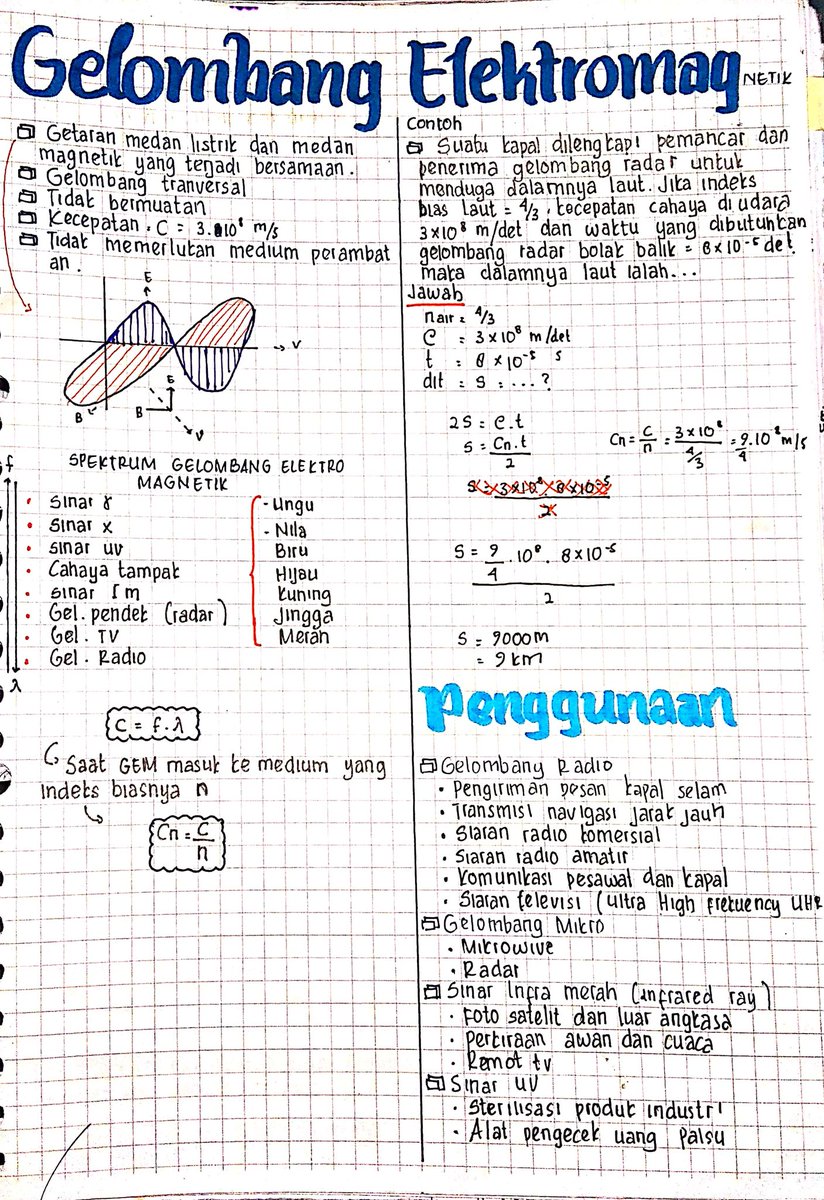 Gelombang Elektromag
NETIK
Getaran medan listrik dan medan
magnetik yang terjadi bersamaan.
Gelombang tranversal
Tidak bermuatan
Kecepatan, C = 3.10⁸ m/s
Tidak memerlukan medium perambat
an.
E
V
B
E
B
V
SPEKTRUM GELOMBANG ELEKTRO
MAGNETIK
f
λ
• Sinar γ
• Sinar x
• sinar uv
• Cahaya tampak
• sinar I m
• Gel. pendek (radar)
• Gel. TV
• Gel. Radio
- Ungu
- Nila
Biru
Hijau
Kuning
Jingga
Merah
C = f.λ
Saat GEM masuk ke medium yang
indeks biasnya n
Cn = C/n
Contoh
Suatu kapal dilengkapi pemancar dan
penerima gelombang radar untuk
menduga dalamnya laut. Jika indeks
bias laut = 4/3, kecepatan cahaya di udara
3×10⁸ m/det dan waktu yang dibutuhkan
gelombang radar bolak balik = 8×10⁻⁵ det.
maka dalamnya laut ialah...
Jawab
nair = 4/3
C = 3×10⁸ m/det
t = 8×10⁻⁵ s
dit = s = ...?
2S = C.t
S = Cn.t/2
Cn = C/n = 3×10⁸/4/3 = 9/4.10⁸ m/s
S = 3×10⁸ × 8×10⁻⁵/2
S = 9/4 . 10⁸ . 8×10⁻⁵
2
S = 9000 m
= 9 km
Penggunaan
Gelombang Radio
• Pengiriman pesan kapal selam
• Transmisi navigasi jarak jauh
• Siaran radio komersial
• Siaran radio amatir
• Komunikasi pesawal dan kapal
• Siaran televisi (ultra High frekuency UHF
Gelombang Mikro
• Mikrowive
• Radar
Sinar Infra merah (infrared ray)
• Foto satelit dan luar angkasa
• perkiraan awan dan cuaca
• Remot tv
Sinar UV
• Sterilisasi produk industri
• Alat pengecek uang palsu